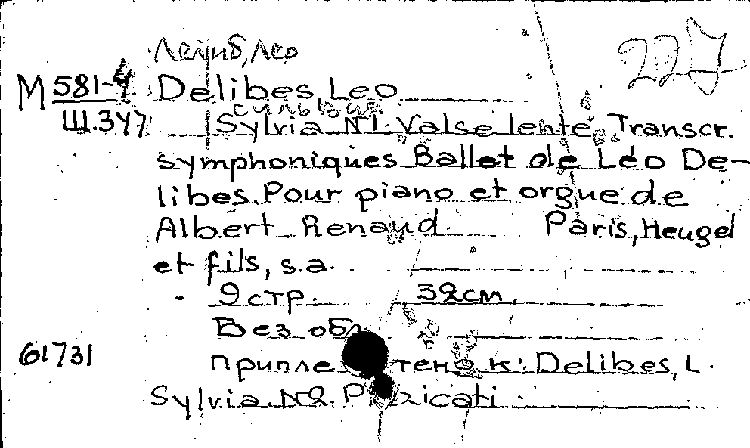 Делиб, Лео
227
M 581-4
Ш.347
Delibes Leo
Сильвия
Sylvia N1. Valse lente. Transcr.
symphoniques Ballet de Léo De-
libes. Pour piano et orgue de
Albert Renaud Paris, Heugel
et fils, s.a.
9 стр. 32см.
Без обл.
61731
к: Delibes, L.
Sylvia. N2.